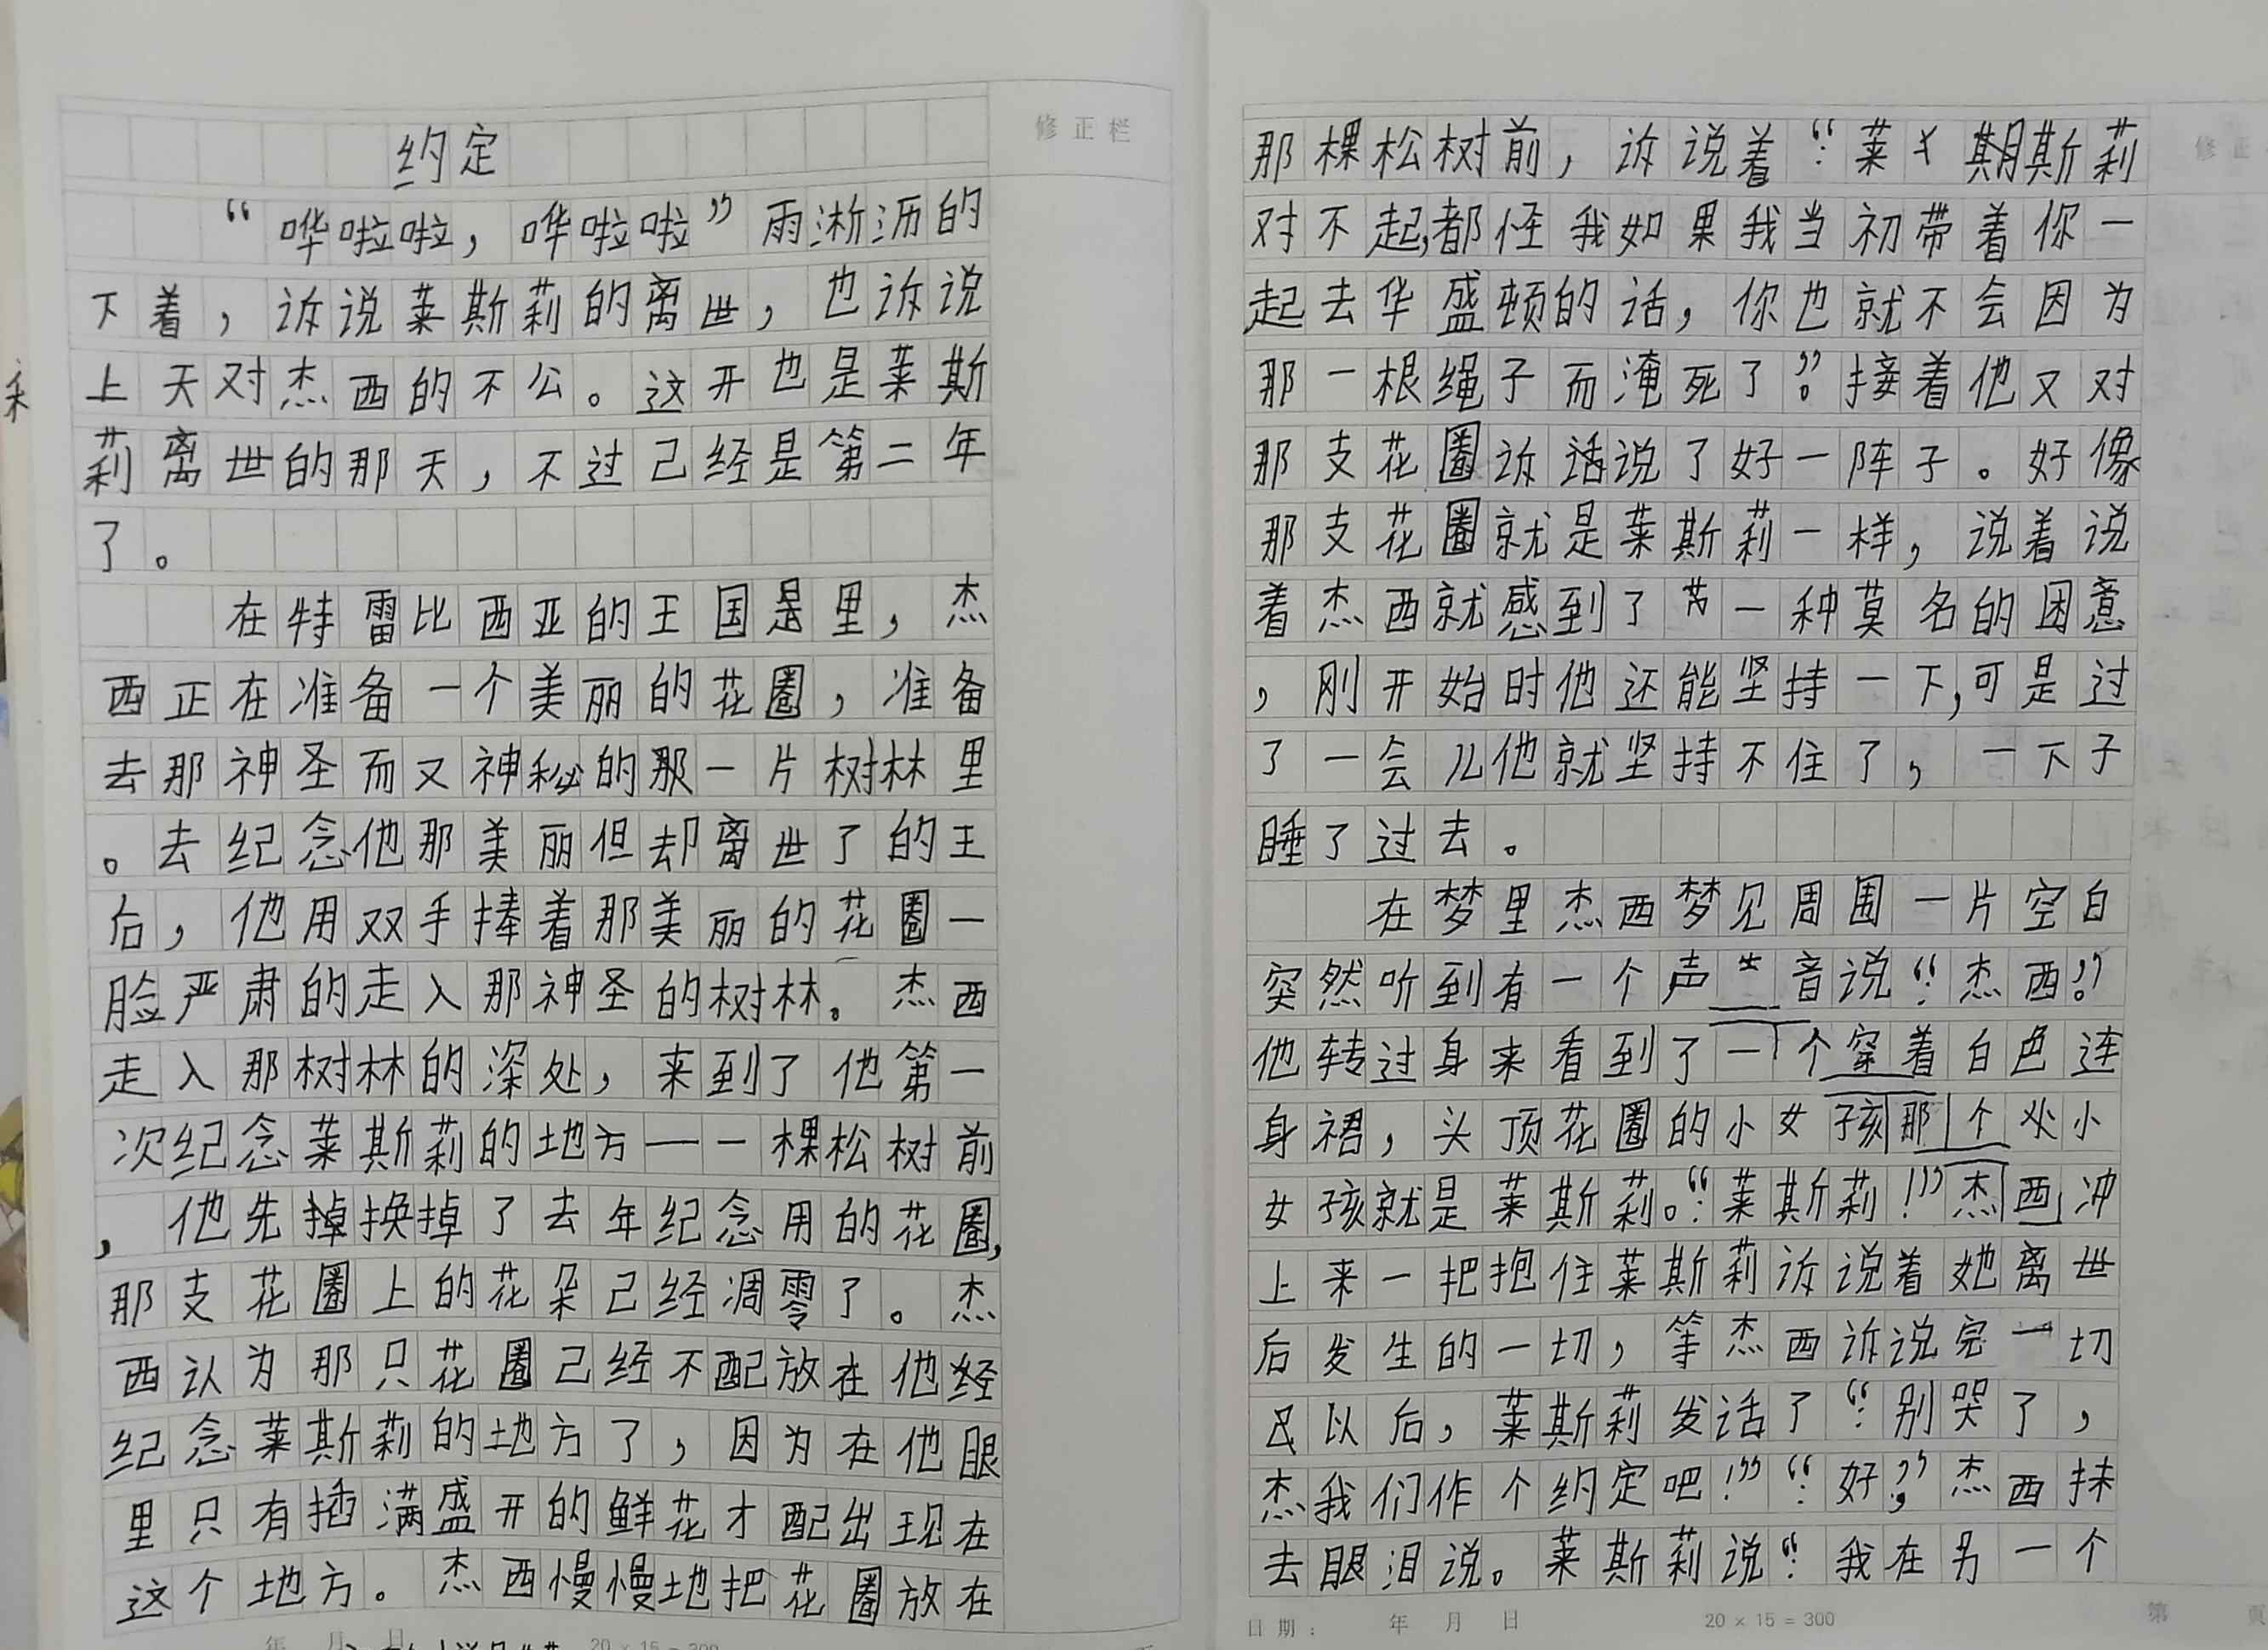 约定
“哗啦啦，哗啦啦”雨淅沥的
下着，诉说莱斯莉的离世，也诉说
上天对杰西的不公。这开也是莱斯
莉离世的那天，不过己经是第二年
了。
在特雷比西亚的王国是里，杰
西正在准备一个美丽的花圈，准备
去那神圣而又神秘的那一片树林里
。去纪念他那美丽但却离世了的王
后，他用双手捧着那美丽的花圈一
脸严肃的走入那神圣的树林。杰西
走入那树林的深处，来到了他第一
次纪念莱斯莉的地方——一棵松树前
，他先掉换掉了去年纪念用的花圈，
那支花圈上的花朵己经凋零了。杰
西认为那只花圈己经不配放在他经
纪念莱斯莉的地方了，因为在他眼
里只有插满盛开的鲜花才配出现在
这个地方。杰西慢慢地把花圈放在
年 月 日 20 × 15 = 300
修正栏
那棵松树前，诉说着：“莱期斯莉
对不起，都怪我如果我当初带着你一
起去华盛顿的话，你也就不会因为
那一根绳子而淹死了”。接着他又对
那支花圈诉话说了好一阵子。好像
那支花圈就是莱斯莉一样，说着说
着杰西就感到了一种莫名的困意
，刚开始时他还能坚持一下，可是过
了一会儿他就坚持不住了，一下子
睡了过去。
在梦里杰西梦见周围一片空白
突然听到有一个声音说：“杰西！”
他转过身来看到了一个穿着白色连
身裙，头顶花圈的小女孩那个小
女孩就是莱斯莉。：“莱斯莉！”杰西冲
上来一把抱住莱斯莉诉说着她离世
后发生的一切，等杰西诉说完一切
以后，莱斯莉发话了：“别哭了，
杰我们作个约定吧！”：“好，”杰西抹
去眼泪说。莱斯莉说：“我在另一个
日期： 年 月 日 20 × 15 = 300 第 页
修正